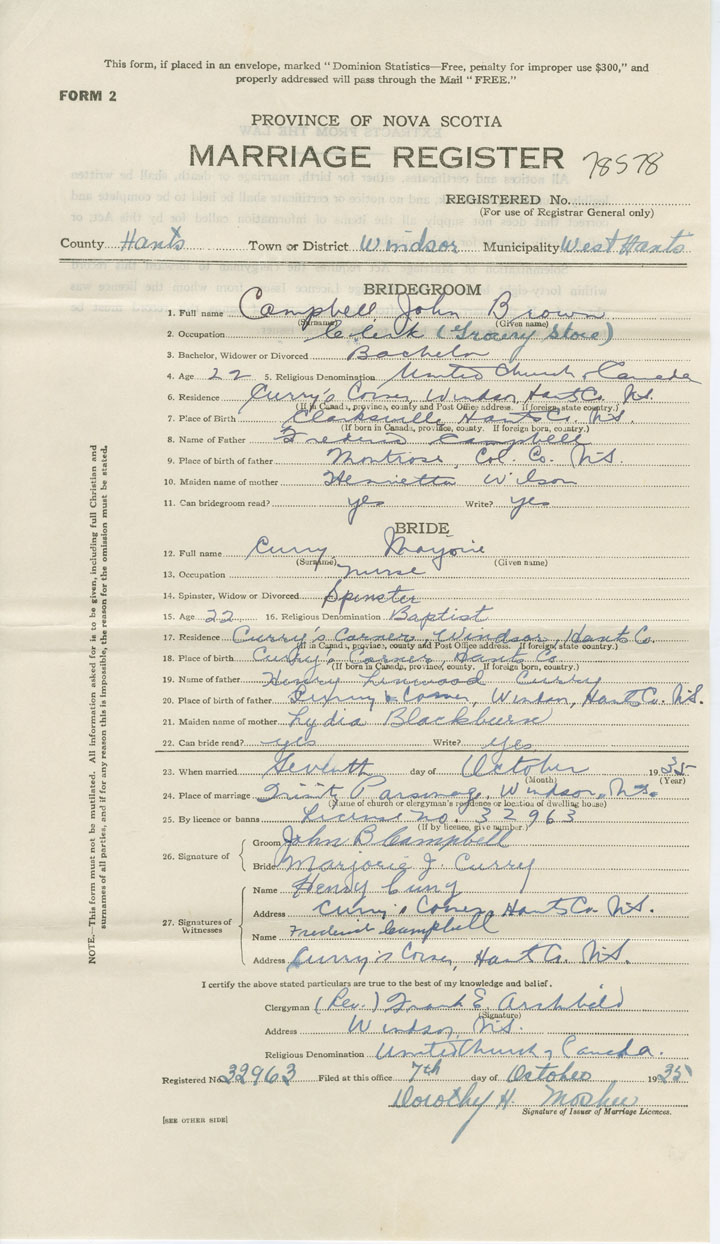 This form, if placed in an envelope, marked "Dominion Statistics—Free, penalty for improper use $300," and
properly addressed will pass through the Mail "FREE."
FORM 2
PROVINCE OF NOVA SCOTIA
MARRIAGE REGISTER 78578
REGISTERED No.
(For use of Registrar General only)
County Hants Town or District Windsor Municipality West Hants
BRIDEGROOM
1. Full name Campbell John Brown
(Surname) (Given name)
2. Occupation Clerk (Grocery Store)
3. Bachelor, Widower or Divorced Bachelor
4. Age 22 5. Religious Denomination United Church, Canada
6. Residence Curry's Corner, Windsor, Hants Co. N.S.
(If in Canada, province, county and Post Office address. If foreign, state country.)
7. Place of Birth Clarksville, Hants Co. N.S.
(If born in Canada, province, county. If foreign born, country.)
8. Name of Father Frederic Campbell
9. Place of birth of father Montrose, Col. Co. N.S.
10. Maiden name of mother Henrietta Wilson
11. Can bridegroom read? yes Write? yes
BRIDE
12. Full name Curry Marjorie
(Surname) (Given name)
13. Occupation nurse
14. Spinster, Widow or Divorced Spinster
15. Age 22 16. Religious Denomination Baptist
17. Residence Curry's Corner, Windsor, Hants Co.
(If in Canada, province, county and Post Office address. If foreign, state country.)
18. Place of birth Curry's Corner Hants Co.
(If born in Canada, province, county. If foreign born, country.)
19. Name of father Henry Linwood Curry
20. Place of birth of father Curry's Corner, Windsor, Hants Co. N.S.
21. Maiden name of mother Lydia Blackburn
22. Can bride read? yes Write? yes
23. When married Seventh day of October 1935
(Month) (Year)
24. Place of marriage Trinity Parsonage, Windsor, N.S.
(Name of church or clergyman's residence or location of dwelling house)
25. By licence or banns License no. 32963
(If by licence, give number.)
26. Signature of
Groom John B Campbell
Bride Marjorie J. Curry
27. Signatures of Witnesses
Name Henry Curry
Address Curry's Corner, Hants Co. N.S.
Name Frederick Campbell
Address Curry's Corner, Hants Co. N.S.
I certify the above stated particulars are true to the best of my knowledge and belief.
Clergyman (Rev.) Frank E. Archibald
(Signature)
Address Windsor, N.S.
Religious Denomination United Church, Canada.
Registered No. 32963 Filed at this office 7th day of October 1935
Dorothy H. Mosher
Signature of Issuer of Marriage Licences.
[SEE OTHER SIDE]
NOTE.—This form must not be mutilated. All information asked for is to be given, including full Christian and
surnames of all parties, and if for any reason this is impossible, the reason for the omission must be stated.